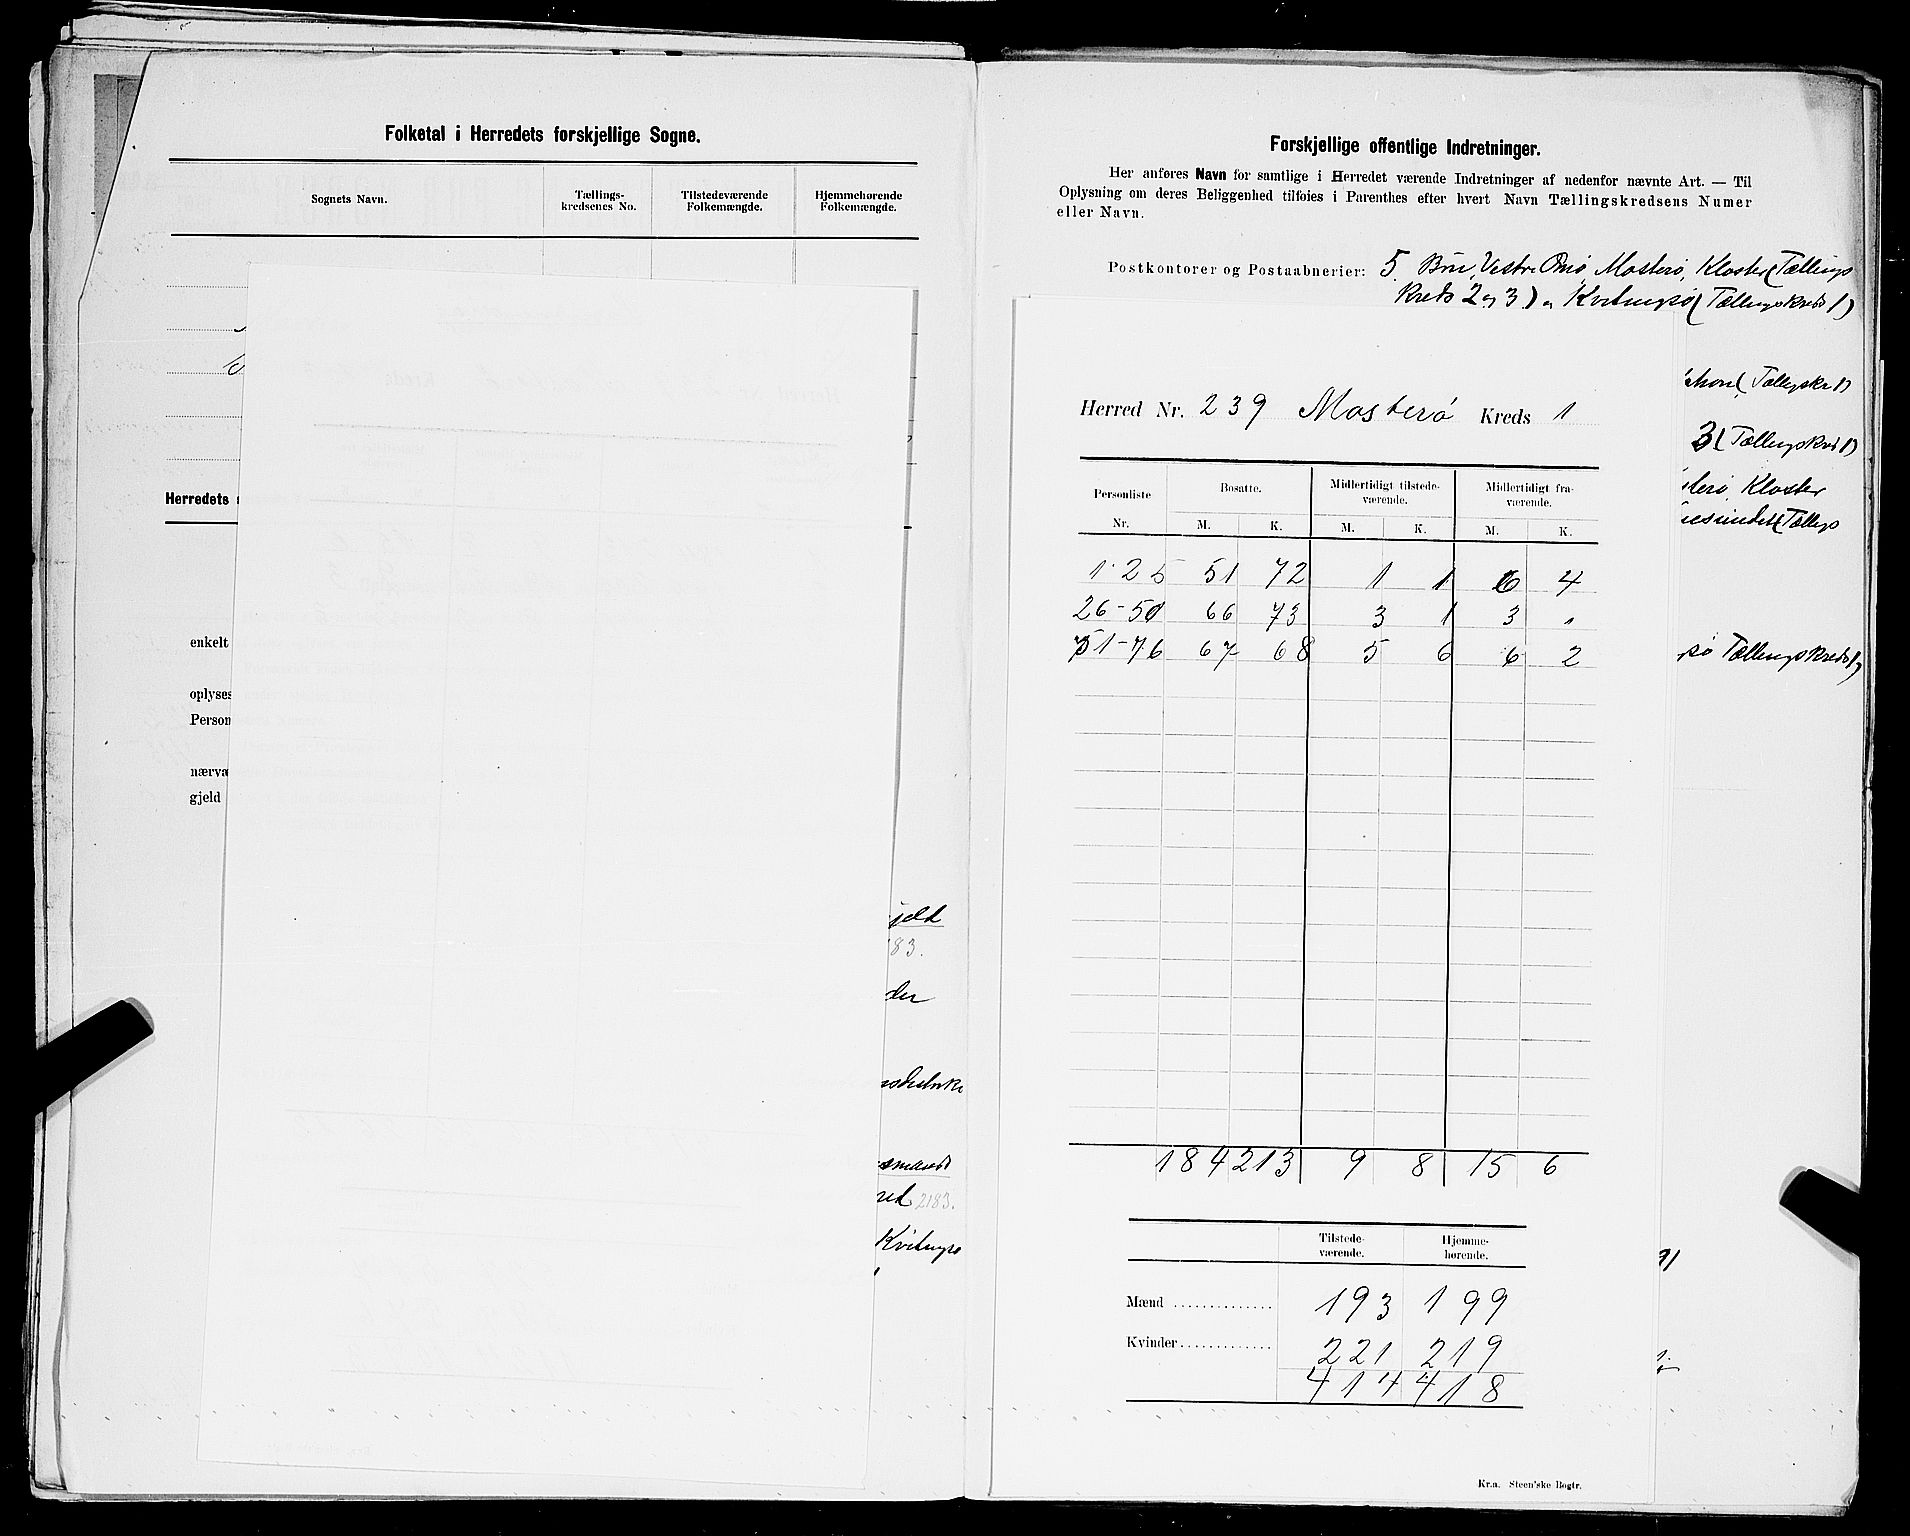 Folketal i Herredets forskjellige Sogne.
Sognets Navn. Tællings-kredsenes No. Tilstedeværende Folkemængde. Hjemmehørende Folkemængde.
Herredets
enkelt
oplyses
Person
nærvæ
gjeld
jeld
83.
der
2183.
Kvitingsø
Forskjellige offentlige Indretninger.
Her anføres Navn for samtlige i Herredet værende Indretninger af nedenfor nævnte Art. — Til
Oplysning om deres Beliggenhed tilføies i Parenthes efter hvert Navn Tællingskredsens Numer
eller Navn.
Postkontorer og Postaabnerier: 5 Bru, Vestre Omø Mosterø, Kloster (Tællings
kreds 2 og 3) og Kvitingsø (Tællingskreds 1)
(Tællgskr 1)
3 (Tællingskreds 1)
sterø Kloster
(Tællgs
sø Tællingskreds 1)
Herred Nr. 239 Mosterø Kreds 1
Personliste Nr. Bosatte. Midlertidigt tilstedeværende. Midlertidigt fraværende.
M. K. M. K. M. K.
1-25 51 72 1 1 6 4
26-50 66 73 3 1 3 "
51-76 67 68 5 6 6 2
184 213 9 8 15 6
Tilstedeværende. Hjemmehørende.
Mænd 193 199
Kvinder 221 219
414 418
Kr.a. Steen'ske Bogtr.